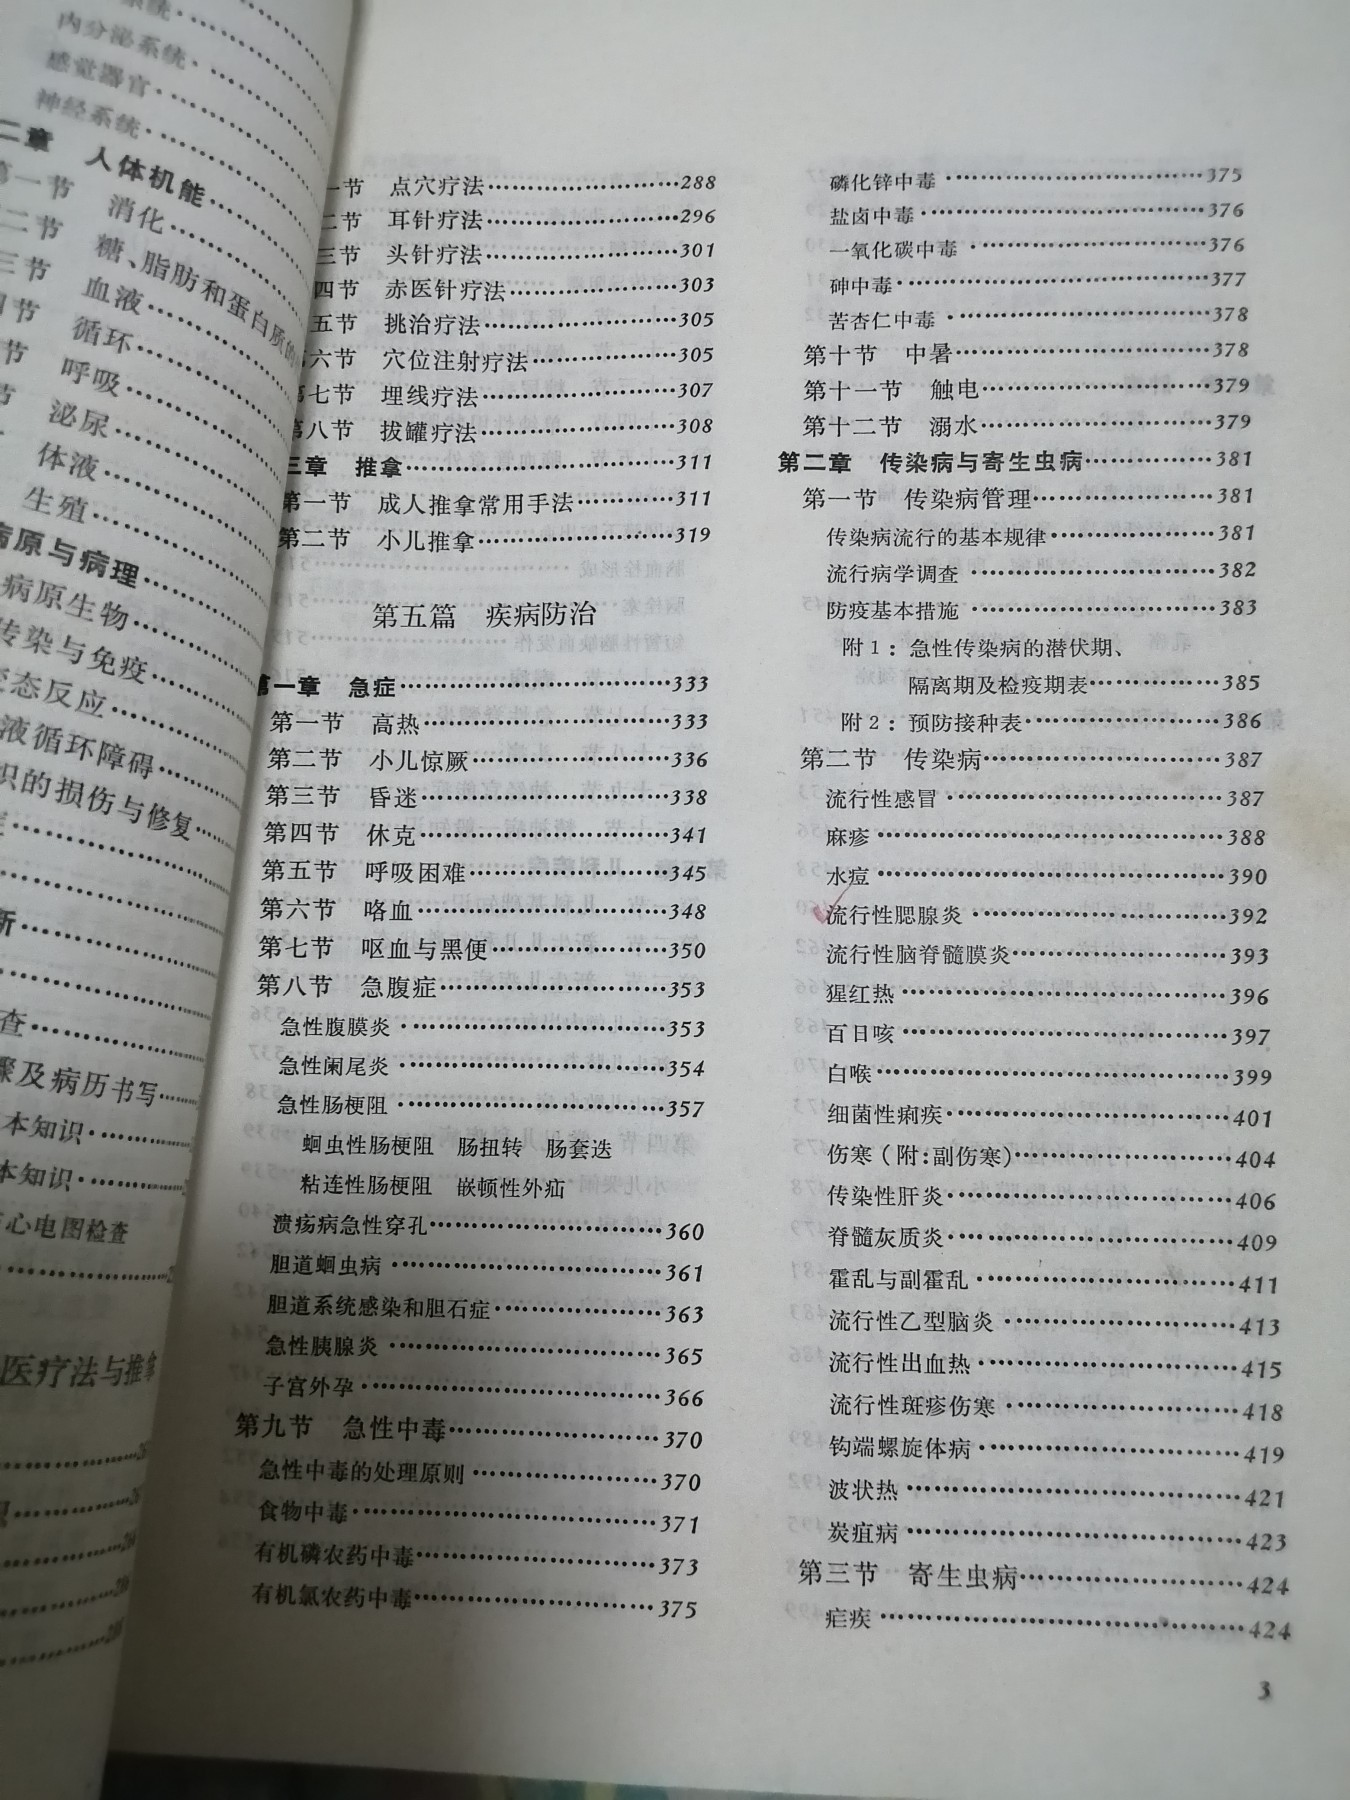 系统
内分泌系统
感觉器官
神经系统
二章 人体机能
第一节 消化
二节 糖、脂肪和蛋白质的
三节 血液
四节 循环
节 呼吸
节 泌尿
体液
生殖
病原与病理
病原生物
传染与免疫
变态反应
液循环障碍
织的损伤与修复
查
骤及病历书写
本知识
本知识
心电图检查
医疗法与推拿
一节 点穴疗法……288
二节 耳针疗法……296
三节 头针疗法……301
四节 赤医针疗法……303
五节 挑治疗法……305
第六节 穴位注射疗法……305
第七节 埋线疗法……307
第八节 拔罐疗法……308
三章 推拿……311
第一节 成人推拿常用手法……311
第二节 小儿推拿……319
第五篇 疾病防治
第一章 急症……333
第一节 高热……333
第二节 小儿惊厥……336
第三节 昏迷……338
第四节 休克……341
第五节 呼吸困难……345
第六节 咯血……348
第七节 呕血与黑便……350
第八节 急腹症……353
急性腹膜炎……353
急性阑尾炎……354
急性肠梗阻……357
蛔虫性肠梗阻 肠扭转 肠套迭
粘连性肠梗阻 嵌顿性外疝
溃疡病急性穿孔……360
胆道蛔虫病……361
胆道系统感染和胆石症……363
急性胰腺炎……365
子宫外孕……366
第九节 急性中毒……370
急性中毒的处理原则……370
食物中毒……371
有机磷农药中毒……373
有机氯农药中毒……375
磷化锌中毒……375
盐卤中毒……376
一氧化碳中毒……376
砷中毒……377
苦杏仁中毒……378
第十节 中暑……378
第十一节 触电……379
第十二节 溺水……379
第二章 传染病与寄生虫病……381
第一节 传染病管理……381
传染病流行的基本规律……381
流行病学调查……382
防疫基本措施……383
附1：急性传染病的潜伏期、
隔离期及检疫期表……385
附2：预防接种表……386
第二节 传染病……387
流行性感冒……387
麻疹……388
水痘……390
流行性腮腺炎……392
流行性脑脊髓膜炎……393
猩红热……396
百日咳……397
白喉……399
细菌性痢疾……401
伤寒（附：副伤寒）……404
传染性肝炎……406
脊髓灰质炎……409
霍乱与副霍乱……411
流行性乙型脑炎……413
流行性出血热……415
流行性斑疹伤寒……418
钩端螺旋体病……419
波状热……421
炭疽病……423
第三节 寄生虫病……424
疟疾……424
3